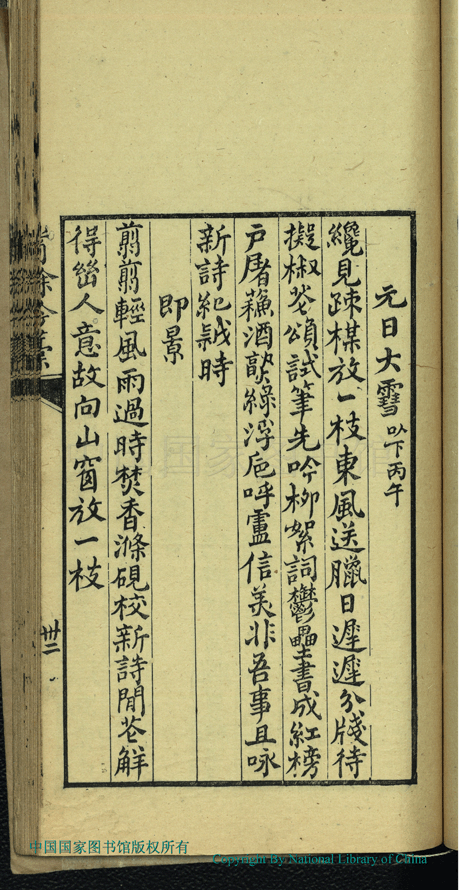 元日大雪 以下丙午
纔見疎楳放一枝東風送臘日遲遲分牋待
擬椒花頌試筆先吟柳絮詞鬱壘書成紅榜
戶屠蘓酒綠浮卮呼盧信美非吾事且咏
新詩紀歲時
即景
翦翦輕風雨過時焚香滌硯校新詩閒花解
得幽人意故向山窗放一枝
卅二
中国国家图书馆版权所有
Copyright By National Library of China